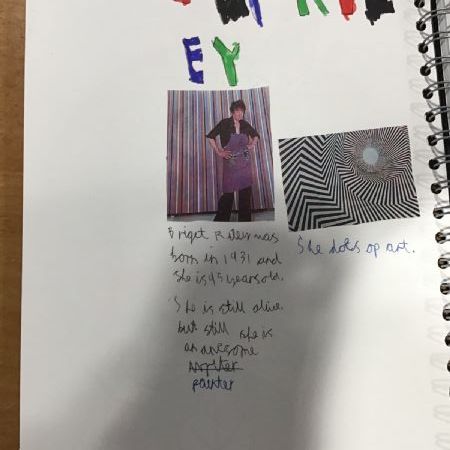 EY
Briget Riley was
born in 1931 and
she is years old.
She does op art.
She is still alive.
but still she is
an awesome
painter